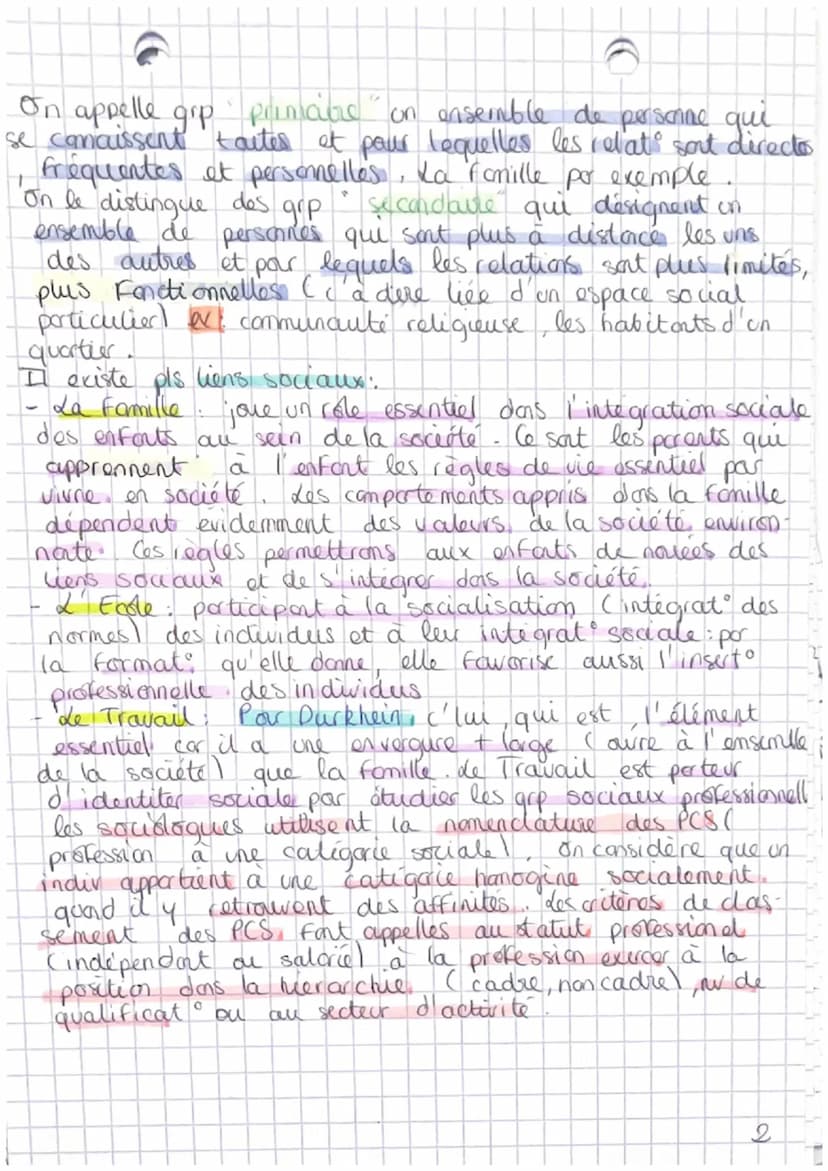 On appelle grp "primaire" un ensemble de personne qui
se connaissent toutes et pour lequelles les relat° sont directes
, fréquentes et personnelles, La famille par exemple.
On le distingue des grp "secondaire" qui désignent un
ensemble de personnes qui sont plus à distance les uns
des autres et pour lequels les relations sont plus limités,
plus Fonctionnelles (c'à dire liée d'un espace social
particulier) ex: communauté religieuse, les habitants d'un
quartier.
Il existe pls liens sociaux:
- La Famille: joue un rôle essentiel dans l'intégration sociale
des enfants au sein de la société. Ce sont les parents qui
apprennent à l'enfant les règles de vie essentiel pour
vivre en société. Les comportements appris dans la famille
dépendent evidemment des valeurs de la société environ-
nante. Ces règles permettrons aux enfants de nouées des
liens sociaux et de s'intégrer dans la société.
- L'Ecole: participant à la socialisation (intégrat° des
normes) des individus et à leur intégrat° sociale: par
la format° qu'elle donne, elle favorise aussi l'insert°
professionnelle des individus
- Le Travail: Pour Durkhein, c'lui qui est, l'élément
essentiel car il a une envergure + large (ouvre à l'ensemble
de la société) que la famille. Le Travail est porteur
d'identiter sociale pour étudier les grp sociaux professionnell
les sociologues utilisent la nomenclature des PCS (
profession à une catégorie sociale). On considère que un
indiv appartient à une catégorie homogène socialement
quand il y retrouvent des affinités. Les critères de clas-
sement des PCS font appelles au statut professionel
(indépendant ou salarié) à la profession exercer à la
position dans la hierarchie (cadre, non cadre), nv de
qualificat° ou au secteur d'activité.
2